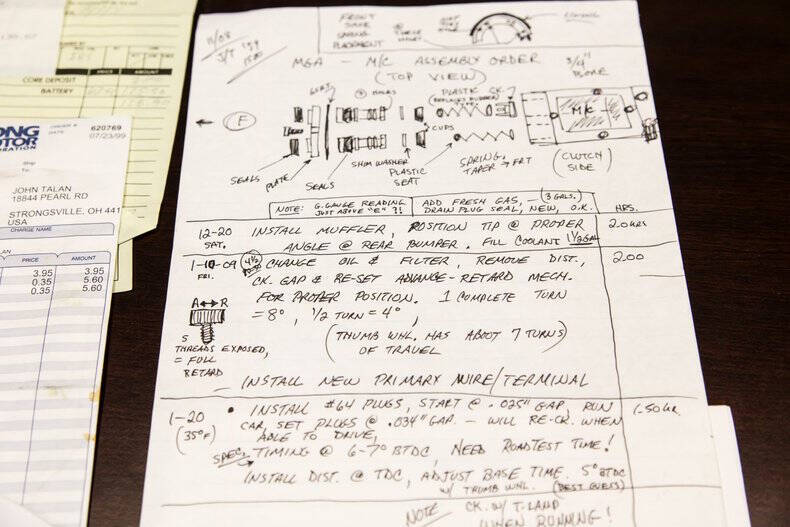 CORE DEPOSIT
BATTERY
PRICE AMOUNT
620769
07/23/99
JOHN TALAN
18844 PEARL RD
STRONGSVILLE, OH 441
USA
CHARGE NAME
PRICE AMOUNT
3.95 3.95
0.35 5.60
0.35 5.60
FRONT
SPRING
PLACEMENT
11/08
MGA - M/C ASSEMBLY ORDER
(TOP VIEW)
3/4"
BORE
F
HOLES
PLASTIC CK.
M/C
CUPS
SEALS
PLATE
SEALS
SHIM WASHER
PLASTIC
SEAT
SPRING,
TAPER → FRT
(CLUTCH
SIDE)
NOTE: G. GAUGE READING
JUST ABOVE "E" ?!
ADD FRESH GAS, - (3 GALS.)
DRAIN PLUG SEAL, NEW, O.K.
HRS.
12-20
SAT.
INSTALL MUFFLER, POSITION TIP @ PROPER
ANGLE @ REAR BUMPER. FILL COOLANT 1 1/2 GAL
2.0 HRS
1-10-09
FRI.
4 1/2
CHANGE OIL & FILTER, REMOVE DIST.,
CK. GAP & RE-SET ADVANCE-RETARD MECH.
FOR PROPER POSITION. 1 COMPLETE TURN
= 8°, 1/2 TURN = 4°,
(THUMB WHL. HAS ABOUT 7 TURNS)
OF TRAVEL
2.00
A ↔ R
5
THREADS EXPOSED,
= FULL
RETARD
INSTALL NEW PRIMARY WIRE/TERMINAL
1-20
(35°F)
• INSTALL #64 PLUGS, START @ .025" GAP, RUN
CAR, SET PLUGS @ .034" GAP. - WILL RE-CK. WHEN
ABLE TO DRIVE,
SPEC. TIMING @ 6-7° BTDC, NEED ROADTEST TIME!
INSTALL DIST. @ TDC, ADJUST BASE TIME. 5° BTDC
W/ THUMB WHL. (BEST GUESS)
1.50 HR.
NOTE CK. W/ T. LAND
WHEN RUNNING!